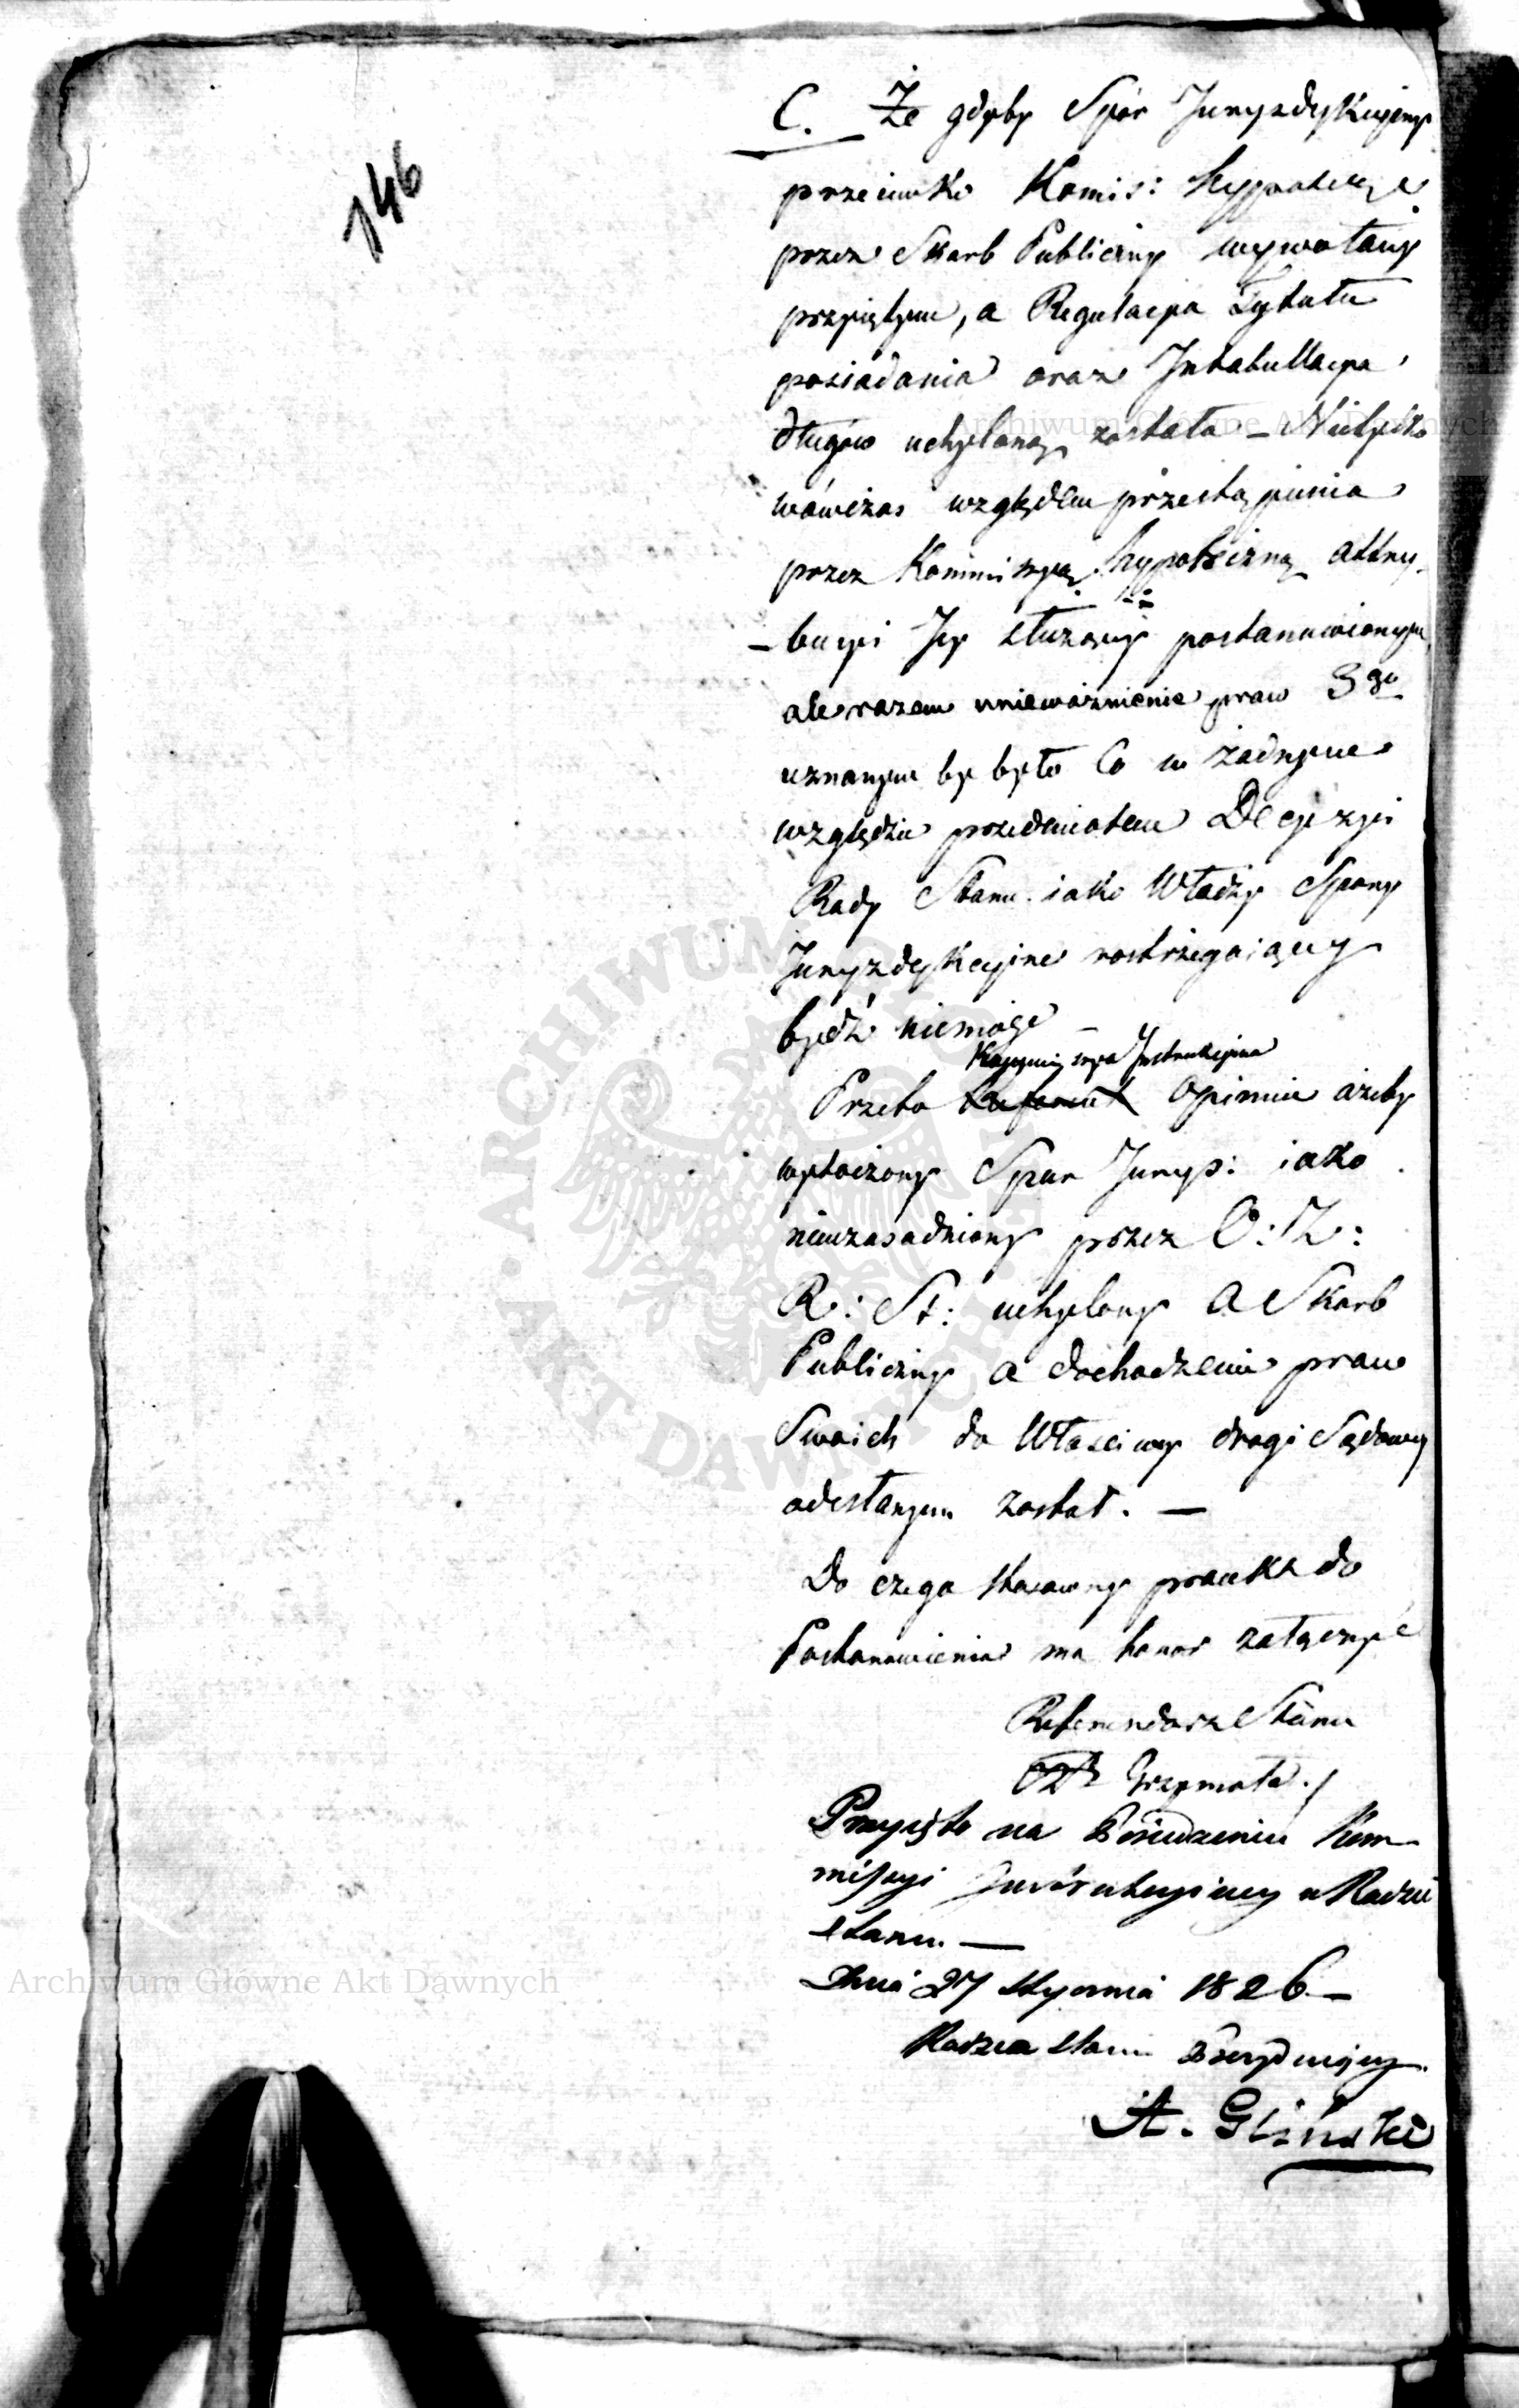 146
C. Że gdyby Spór Juryzdykcyiny
przeciwko Komis:
przez Skarb Publiczny wywołany
przyiętym, a Regulacya Tytułu
posiadania oraz Intabullacya
długów uchyloną została – Nietylko
wówczas względem przestąpienia
przez Kommissyą Hypoteczną attry-
-bucyi Jey służący postanowionym
ale razem unieważnienie praw 3go
uznanym by było Co w żadnym
względzie przedmiotem Decyzyi
Rady Stanu iako Władzy Spory
Juryzdykcyine rostrzegaiący
bydź niemoże –
Kommissya Instrukcyina
Przeto opiniie ażeby
wytoczony Spor Juryz: iako
nieuzasadniony przez O: Z:
R: St: uchylony a Skarb
Publiczny o dochodzenie praw
Swoich do Właściwey drogi Sądowey
odesłanym został. —
Do czego stosowny proiekt do
Postanowienia ma honor załączyć
Referendarz Stanu
Grzymała
Przyięto na Posiedzeniu Kom-
missyi Instrukcyiney w Radzie
Stanu. —
Dnia 27 Stycznia 1826 –
Radzca Stanu Prezyduiący
A. Gliński
Archiwum Główne Akt Dawnych
Archiwum Główne Akt Dawnych
ARCHIWUM GŁÓWNE AKT DAWNYCH